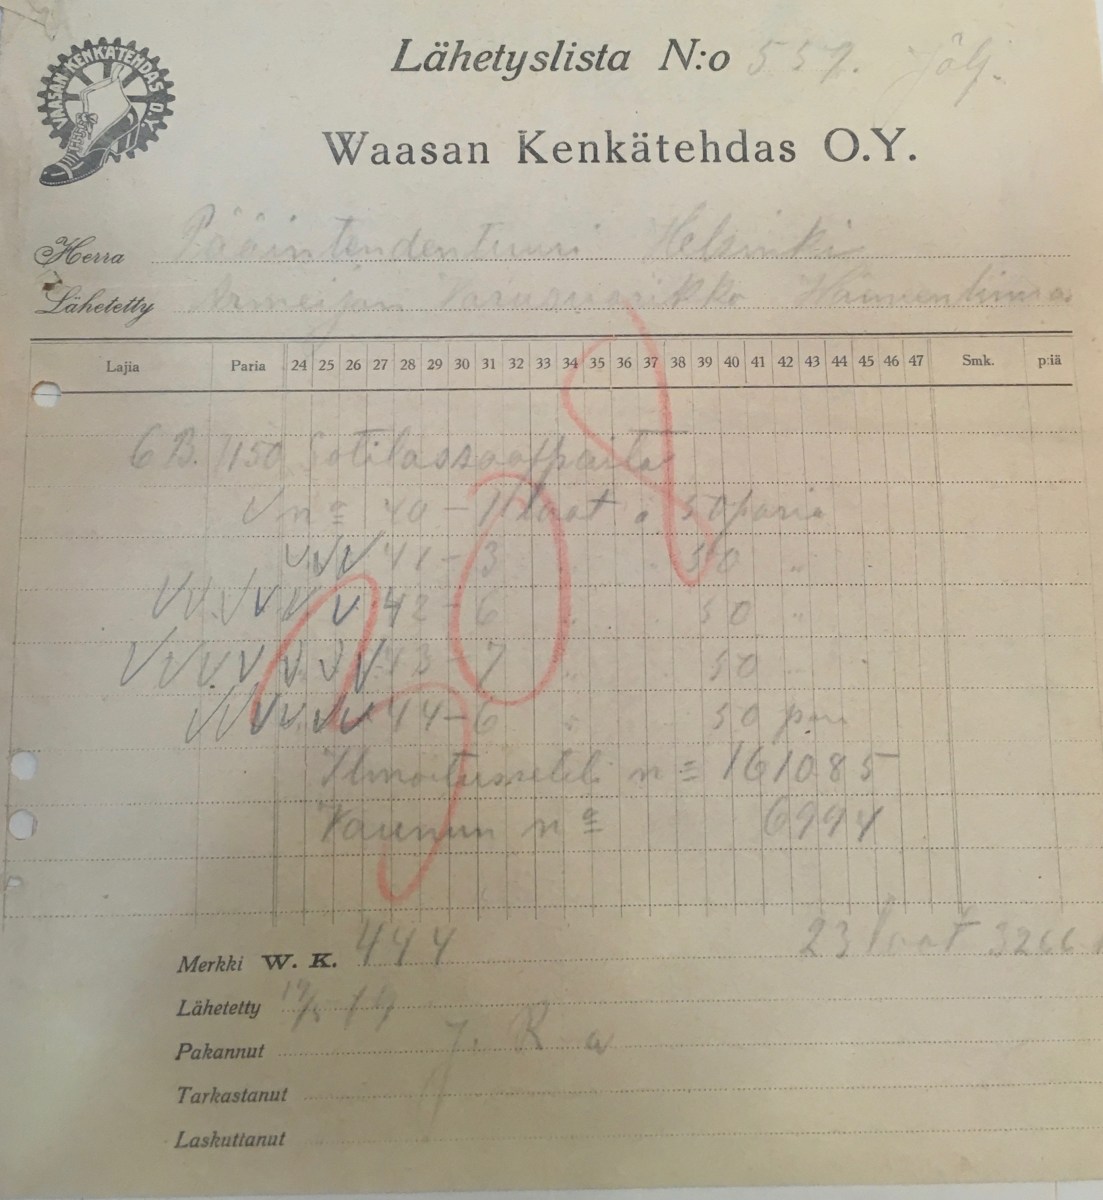 VAASAN KENKÄTEHDAS O.Y.
Lähetyslista N:o 557. Jälj.
Waasan Kenkätehdas O.Y.
Herra Pääintendentuuri Helsinki
Lähetetty Armeijan Varusvarikko Hämeenlinna
Lajia Paria 24 25 26 27 28 29 30 31 32 33 34 35 36 37 38 39 40 41 42 43 44 45 46 47 Smk. p:iä
6 B. 1150 Sotilassaappaita
n:o 40 - 1 laat. à 50 paria
41 - 3 " 50 "
42 - 6 " 50 "
43 - 7 " 50 "
44 - 6 " 50 par
Ilmoitusseteli n:o 161085
Vaunun n:o 6994
208
2
Merkki W. K. 444 23 laat 3266
Lähetetty 19
Pakannut J. R
Tarkastanut
Laskuttanut